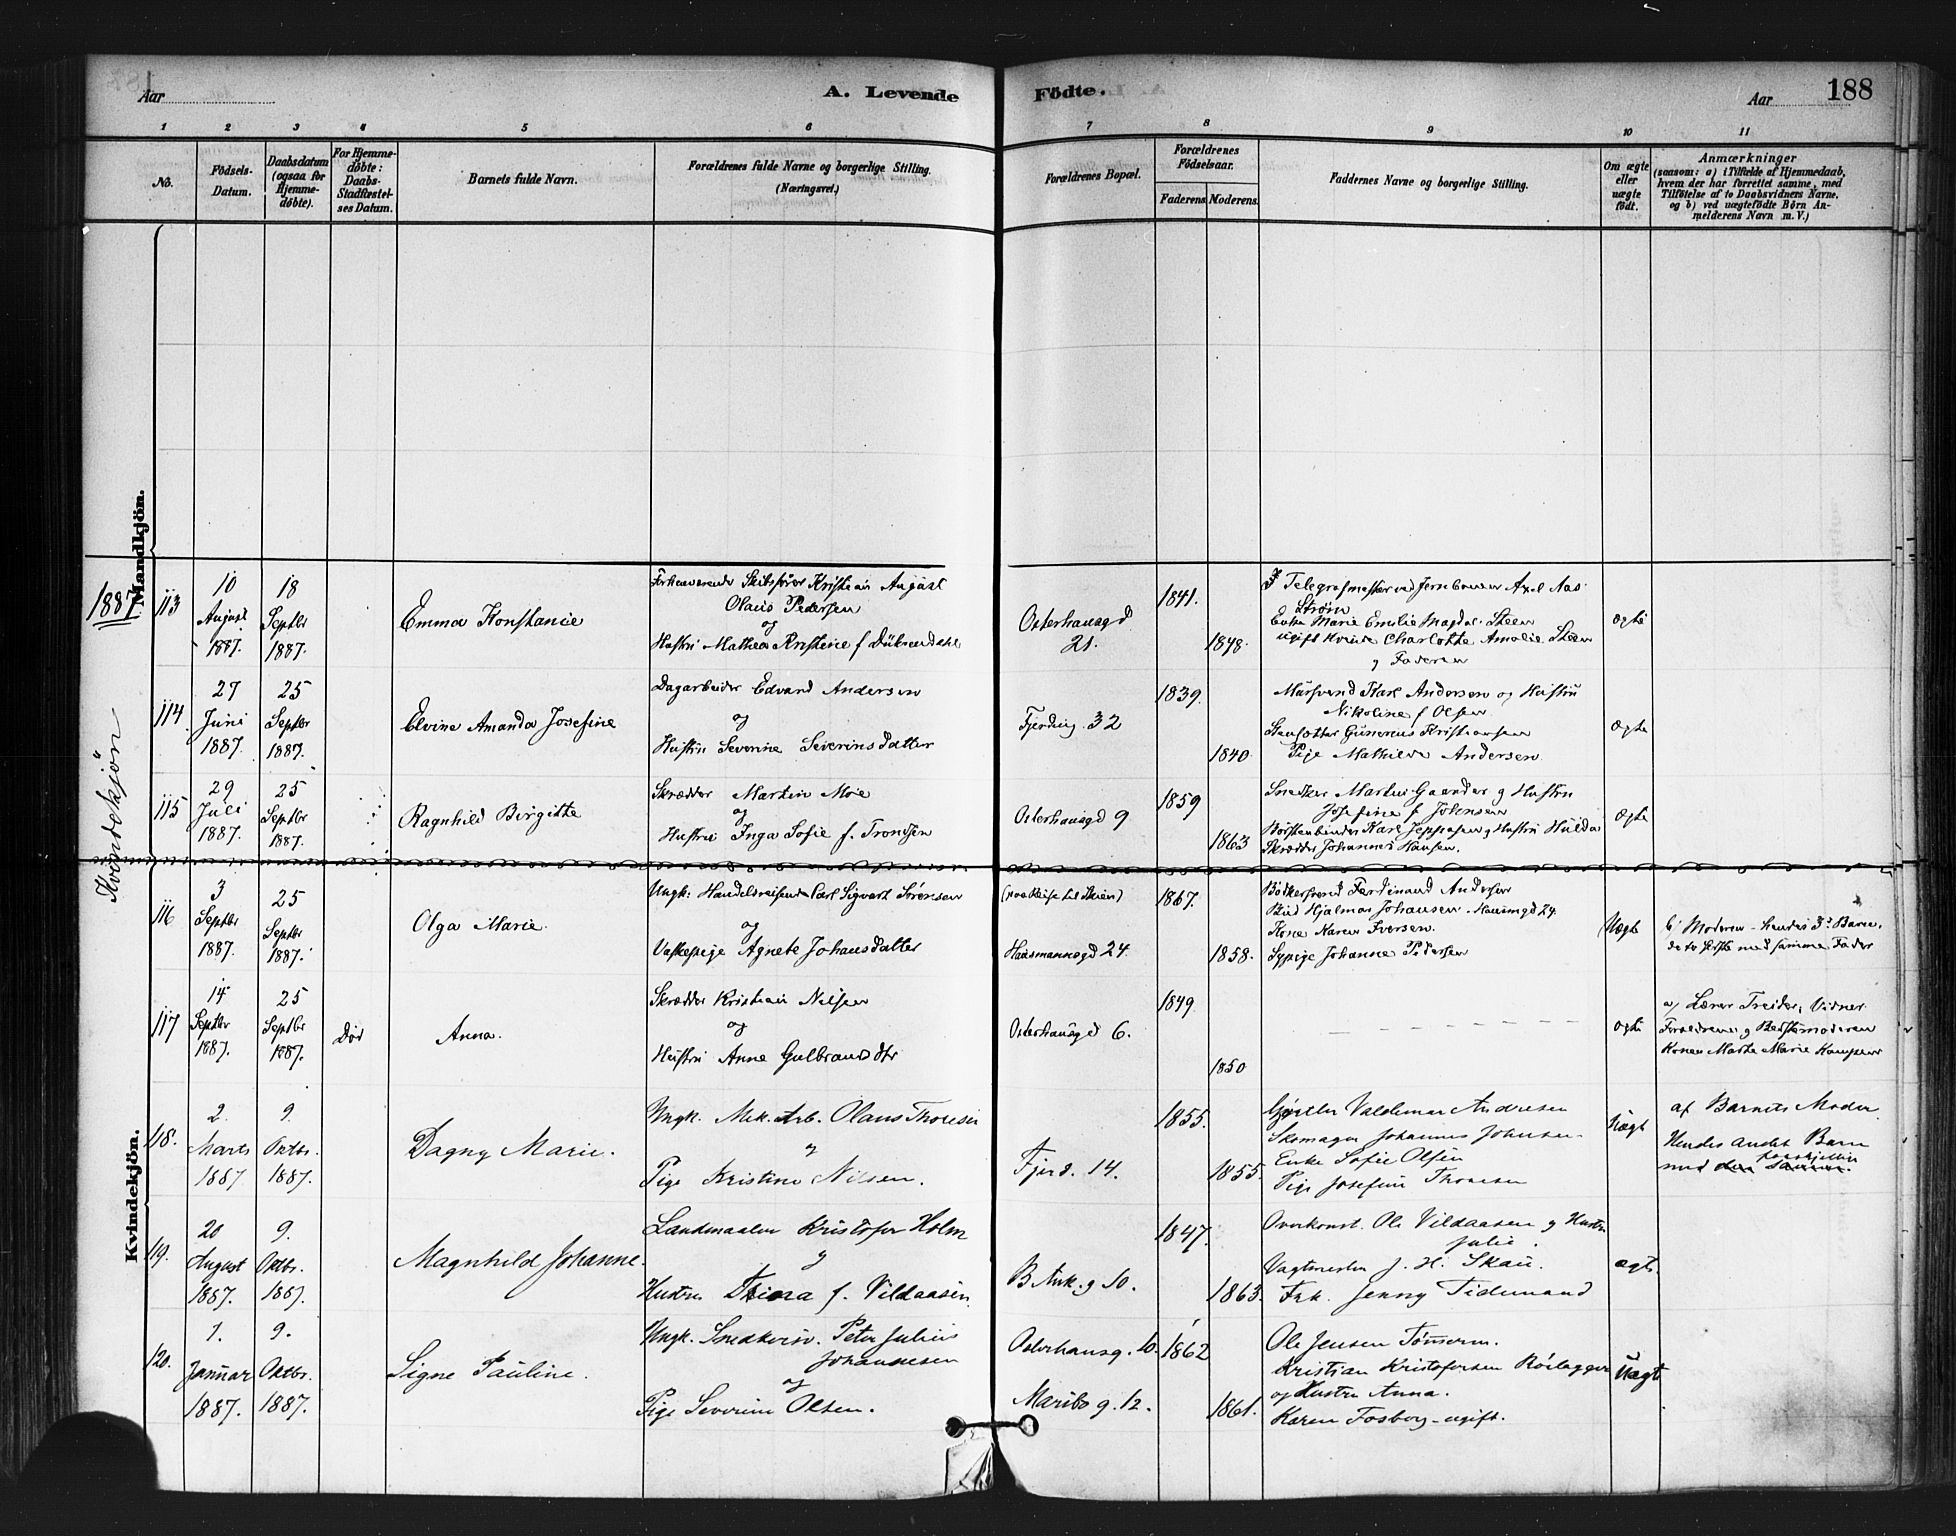 Aar
A. Levende
Födte.
Aar
188
1 2 3 4 5 6 7 8 9 10 11
No.
Födsels-
Datum.
Daabsdatum
(ogsaa for
Hjemme-
döbte).
For Hjemme-
döbte:
Daabs-
Stadfæstel-
ses Datum.
Barnets fulde Navn.
Forældrenes fulde Navne og borgerlige Stilling.
(Næringsvei.)
Forældrenes Bopæl.
Forældrenes
Födselsaar.
Faderens.
Moderens.
Faddernes Navne og borgerlige Stilling.
Om ægte
eller
uægte
født.
Anmærkninger
(saasom: a) i Tilfælde af Hjemmedaab,
hvem der har forrettet samme, med
Tilföielse af to Daabsvidners Navne,
og b) ved uægtefödte Börn An-
melderens Navn m. V.)
Mandkjön.
1887
Kvindekjön
113
10
August
1887.
18
Septbr
1887.
Emma Konstancie
Forhenværende Skibsfører Kristian August
Olaus Pedersen
og
Hustru Mathea Kristine f
Osterhausgd
21.
1841.
1848.
Telegrafmester ved Jernbanen Axel Aas
Strøm
Enke Marie Emilie Magdal. Steen
ugift Kvinde Charlotte Amalie Steen
g Faderen
ægte
114
27
Juni
1887.
25
Septbr
1887.
Elvine Amanda Josefine
Dagarbeider Edvard Andersen
og
Hustru Severine Severinsdatter
Fjerding. 32
1839.
1840
Mursvend Karl Andersen og Hustru
Nikoline f Olsen
Gunerius Kristiansen
Pige Mathilde Andersen
ægte
115
29
Juli
1887.
25
Septbr
1887.
Ragnhild Birgitte
Skrædder Martin Moe
og
Hustru Inga Sofie f. Trondsen
Osterhausgd 9
1859
1863
Snedker Martin Gaarder g Hustru
Josefine f Johensen
Børstenbinder Karl Jeppesen g Hustru Hulda
Skrædder Johannes Hansen.
ægte
116
3
Septbr
1887.
25
Septbr
1887.
Olga Marie.
Ungk. Handelsreisende Carl Sigvart Sörensen
og
Vaskepige Agnete Johansdatter
(paa Reise til Skien)
Hausmannsgd 24.
1867.
1858.
Bødkersvend Ferdinand Andersen
Bud Hjalmar Johansen Hausmgd 24.
Kone Karen Iversen.
Sypige Johanne Pedersen
Uægte
b/ Moderen - hendes 3d Barn,
de to første med samme Fader
117
14
Septbr
1887.
25
Septbr
1887.
Död
Anna.
Skrædder Kristian Nilsen
og
Hustru Anne Gulbrandsdtr
Osterhausgd 6.
1849
1850
ægte
a/ Lærer Treider, Vidner
Forældrene g Bedstemoderen
Konen Marthe Marie
Kvindekjön.
118.
2.
Marts
1887
9.
Oktbr.
1887.
Dagny Marie.
Ungk. Mek. Arb. Olaus Thoresen
g
Pige Kristine Nilsen.
Fjerd. 14.
1855.
1855.
Gjørtler Valdemar Andresen
Skomager Johannes Johnsen
Enke Sofie Olsen
Pige Josefine Thoresen
Uægt
af Barnets Moder
Hendes andet Barn
forskjellig
med den samme.
119.
20
August
1887.
9.
Oktbr.
1887.
Magnhild Johanne.
Landmaaler Kristofer Holm
g
Hustru Thora f. Vildaasen
B Ank. g 10.
1847.
1863.
Overkonst. Ole Vildaasen g Hustru
Julie.
Vagtmester J. H. Skau.
Frk. Jenny Tidemand
ægt.
120.
1.
Januar
1887.
9.
Oktbr.
1887.
Signe Pauline.
Ungk. Snedkersv. Peter Julius
Johannesen
og
Pige Severine Olsen.
Osterhausg. 10.
Maribo g. 12.
1862
1861.
Ole Jensen Tømerm.
Kristian Kristofersen Rörlægger
og Hustru Anna.
Karen Fosborg - ugift.
Uægt